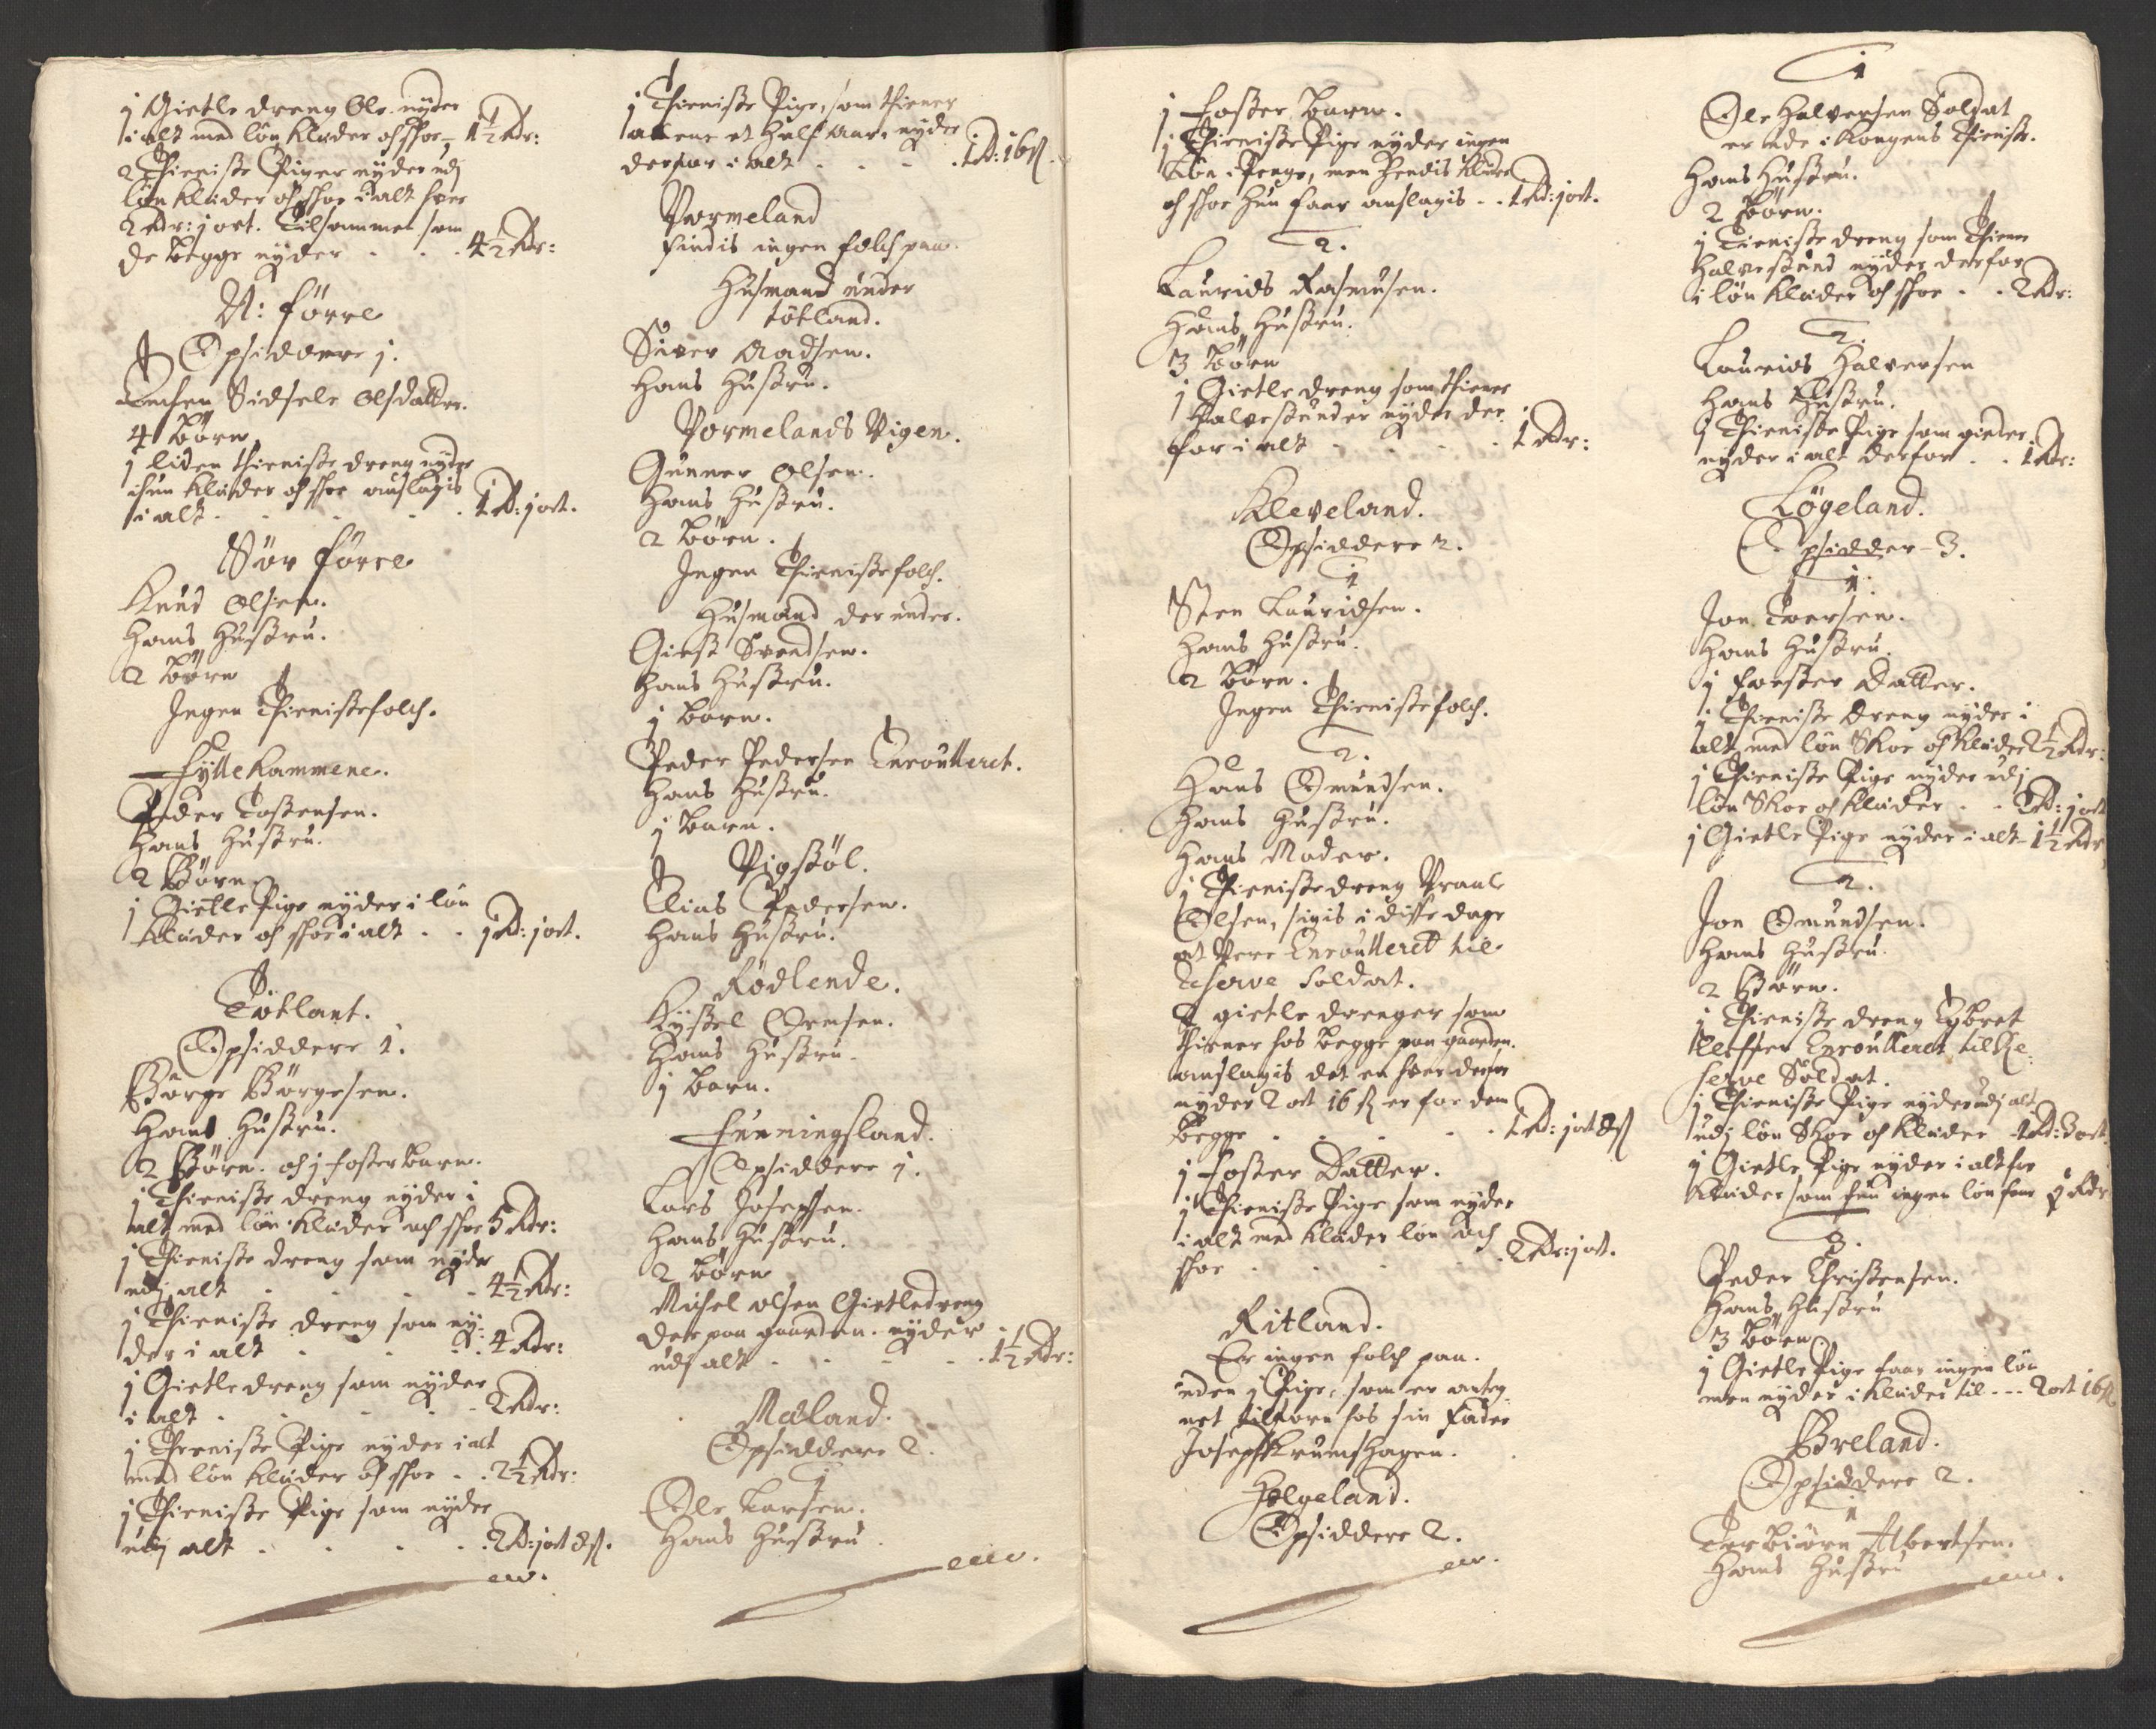 j Gietle dreng Ole nyder
i alt med løn klæder och skoe, 1½ Rdr:
2 Thieniste Piger nyder udj
løn klæder och skoe i alt hver
2 Rdr: j ort. Tilsammel som
de begge nyder . . . 4½ Rdr:
N: førre
Opsiddere j.
Enken Sidsele Olsdatter.
4 børn
j liden thieniste dreng nyder
i hun klæder och skoe anslagis
i alt . . . 1 Rd: j ort.
Sør førre
Knud Olsen.
Hans Hustru.
2 børn
Ingen Thienistefolch.
Fyllekammene.
Peder Tostensen.
Hans Hustru.
2 Børn
j Gietle Pige nyder i løn
klæder och skoe i alt . . j Rd: j ort.
Tøtlant.
Opsiddere 1.
Børge Børgesen.
Hans Hustru.
2 Børn. och j foster barn.
j Thieniste dreng nyder i
alt med løn klæder och skoe 5 Rdr:
j Thieniste dreng som nyder
udj alt . . . 4½ Rdr:
j Thieniste dreng som ny-
der i alt . . . 4 Rdr:
j Gietledreng som nyder
i alt . . . 2 Rdr:
j Thieniste Pige nyder i alt
med løn klæder och skoe . . 2½ Rdr:
j Thieniste Pige som nyder
udj alt . . . 2 Rd: j ort 8 ß.
en.
j Thieniste Pige, som thiener
allene et halft aar, nyder
derfor i alt . . . 1 Rd: 16 ß.
Vormeland
findis ingen folch paa.
Husmand under
tøtland.
Siver Madsen.
Hans Hustru.
Vormelands Vigen.
Gunner Olsen.
Hans Hustru.
2 børn.
Ingen Thienistefolch.
Husmand der under.
Giest Svendsen.
Hans Hustru.
j barn.
Peder Pedersen Enroulleret.
Hans Hustru.
j barn.
Vigstøl.
Elias Pedersen.
Hans Hustru.
Rødlende.
Kystel Ormsen.
Hans Hustru
j barn.
Funningsland.
Opsiddere j.
Lars Josephsen.
Hans Hustru.
2 børn
Michel olsen Gietledreng
der paa gaarden. nyder
udj alt . . . 1½ Rdr:
Mæland.
Opsiddere 2.
1
Ole Larsen.
Hans Hustru
en.
j foster barn.
j Thieniste Pige nyder ingen
Løn i Penge, men hendis klæder
och skoe hun faar anslagis . . 1 Rd: j ort.
2.
Laurids Rasmusen.
Hans Hustru.
3 børn
j Gietle dreng som thiener
halvestunder nyder der-
for i alt . . . 1 Rdr:
Kleveland.
Opsiddere 2.
1
Sten Lauridsen.
Hans Hustru.
2 børn.
Ingen Thienistefolch.
2.
Hans Omundsen.
Hans Hustru.
Hans Moder.
j Thieniste dreng Vraal
Olsen, sigis i disse dage
at Vere Enroulleret til
reserve Soldat.
2 gietle drenger som
thiener hos begge paa gaarden.
anslagis det en hver derfor
nyder 2 ort 16 ß er for dem
begge . . . 1 Rd: j ort 8 ß
j foster Datter.
j Thieniste Pige som nyder
i alt med klæder løn och
skoe . . . 2 Rdr: j ort.
Ritland.
Er ingen folch paa.
uden j Pige, som er anteg-
net tilforn hos sin Fader
Joseph Krumshagen.
Helgeland.
Opsiddere 2.
en.
1
Ole Halversen Soldat
er ude i Kongens Thieniste.
Hans Hustru.
2 børn.
j Tieniste dreng som Thiener
halvestund nyder derfor
i løn klæder och skoe . . 2 Rdr:
2.
Laurids Halversen
Hans Hustru.
j Thieniste Pige som gieler
nyder i alt derfor . . 1 Rdr:
Løgeland.
Opsidder - 3.
1.
Jon Torsen.
Hans Hustru.
j Foster Datter.
j Thieniste dreng nyder i
alt med løn Skoe och klæder 2½ Rdr:
j Thieniste Pige nyder udj
løn Skoe och klæder . . 2 Rd: j ort
j Gietle Pige nyder i alt - 1½ Rdr
2.
Jon Omundsen.
Hans Hustru.
2 Børn.
j Thieniste dreng Eybret
Enroulleret til Re-
serve Soldat.
j Thieniste Pige nyder udj alt
udj løn Skoe och klæder - 1 Rd: 3 ort.
j Gietle Pige nyder i alt for
klæder som hun ingen løn faar j Rdr
3.
Peder Christensen.
Hans Hustru
3 Børn
j Gietle Pige faar ingen løn
men nyder i klæder til - - - 2 ort 16 ß
Breland.
Opsiddere 2.
1
Torbiørn Albertsen.
Hans Hustru
en.